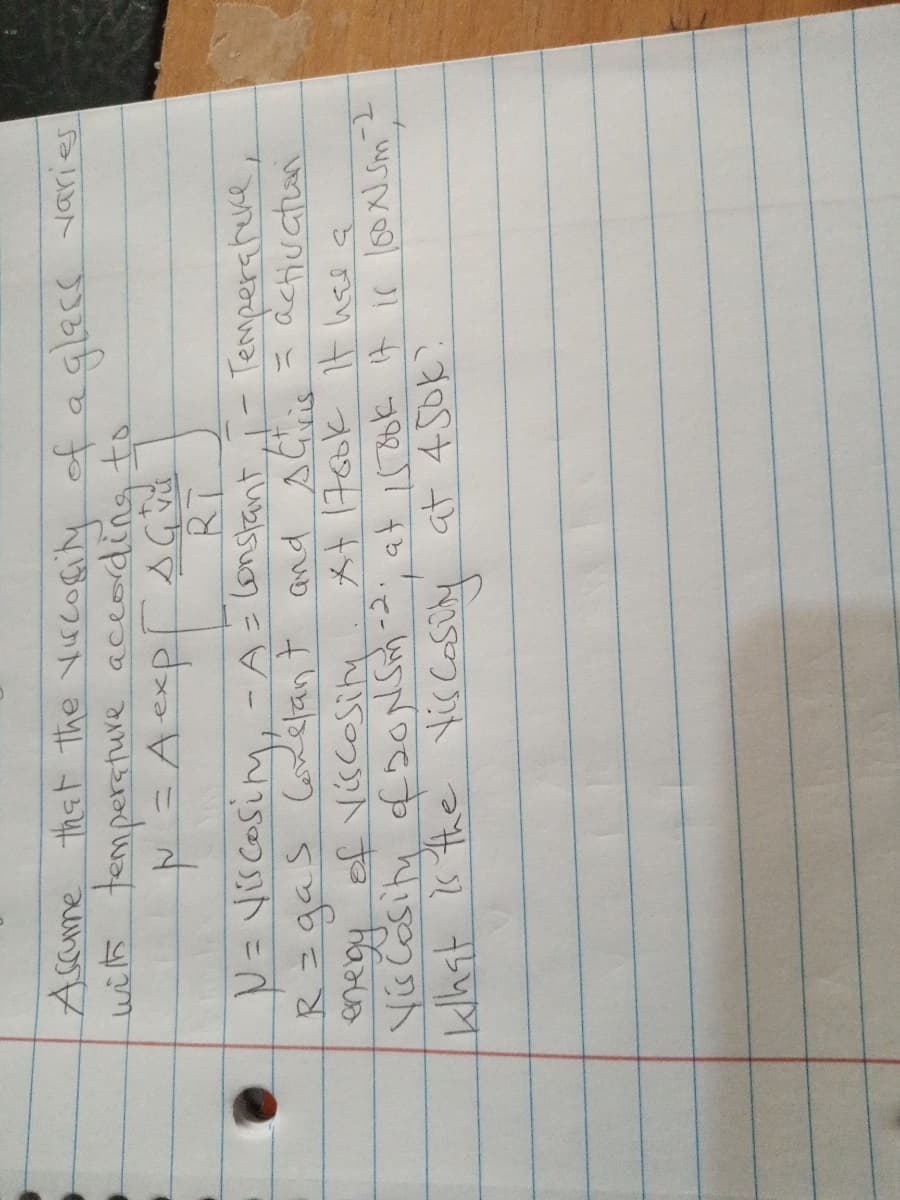 Assume that the viscosity of a glass varies
with temperature according to
μ = A exp [ ΔG‡vis / RT ]
μ = Viscosity, - A = Constant T - Temperature,
R = gas Constant and ΔG‡vis = activation
energy of viscosity. At 1700k It has a
viscosity of 20NSm-2; at 1500k it is 100NSm-2,
What is the viscosity at 450k?